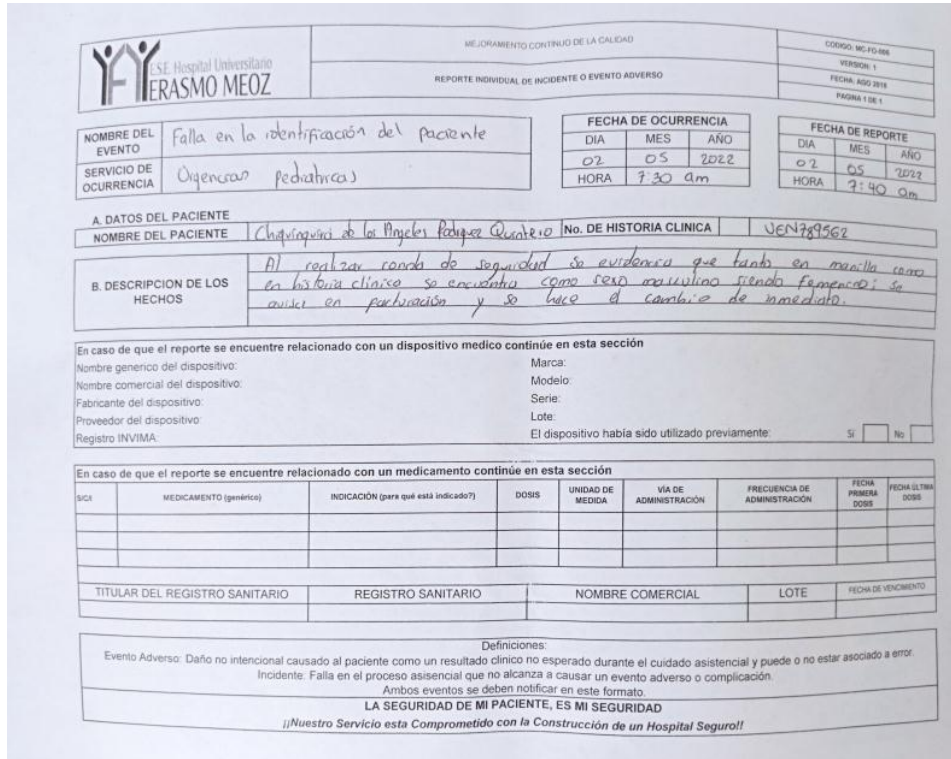 ESE Hospital Universitario
ERASMO MEOZ
MEJORAMIENTO CONTINUO DE LA CALIDAD
REPORTE INDIVIDUAL DE INCIDENTE O EVENTO ADVERSO
CODIGO: MC-FO-006
VERSION: 1
FECHA: AGO 2018
PAGINA 1 DE 1
NOMBRE DEL EVENTO Falla en la identificación del paciente
SERVICIO DE OCURRENCIA Urgencias Pediatricas
FECHA DE OCURRENCIA
DIA MES AÑO
02 05 2022
HORA 7:30 am
FECHA DE REPORTE
DIA MES AÑO
02 05 2022
HORA 7:40 am
A. DATOS DEL PACIENTE
NOMBRE DEL PACIENTE Chiquinquirá de los Angeles Rodriguez Quintero No. DE HISTORIA CLINICA VEN789562
B. DESCRIPCION DE LOS HECHOS
Al realizar ronda de seguridad se evidencia que tanto en manilla como
en historia clinica se encuentra como sexo masculino siendo femenino; se
en facturación y se hace el cambio de inmediato.
En caso de que el reporte se encuentre relacionado con un dispositivo medico continúe en esta sección
Nombre generico del dispositivo: Marca:
Nombre comercial del dispositivo: Modelo:
Fabricante del dispositivo: Serie:
Proveedor del dispositivo: Lote:
Registro INVIMA: El dispositivo había sido utilizado previamente: Si No
En caso de que el reporte se encuentre relacionado con un medicamento continúe en esta sección
MEDICAMENTO (genérico) INDICACIÓN (para qué está indicado?) DOSIS UNIDAD DE MEDIDA VÍA DE ADMINISTRACIÓN FRECUENCIA DE ADMINISTRACIÓN FECHA PRIMERA DOSIS FECHA ULTIMA DOSIS
TITULAR DEL REGISTRO SANITARIO REGISTRO SANITARIO NOMBRE COMERCIAL LOTE FECHA DE VENCIMIENTO
Definiciones:
Evento Adverso: Daño no intencional causado al paciente como un resultado clinico no esperado durante el cuidado asistencial y puede o no estar asociado a error.
Incidente: Falla en el proceso asisencial que no alcanza a causar un evento adverso o complicación.
Ambos eventos se deben notificar en este formato.
LA SEGURIDAD DE MI PACIENTE, ES MI SEGURIDAD
¡¡Nuestro Servicio esta Comprometido con la Construcción de un Hospital Seguro!!